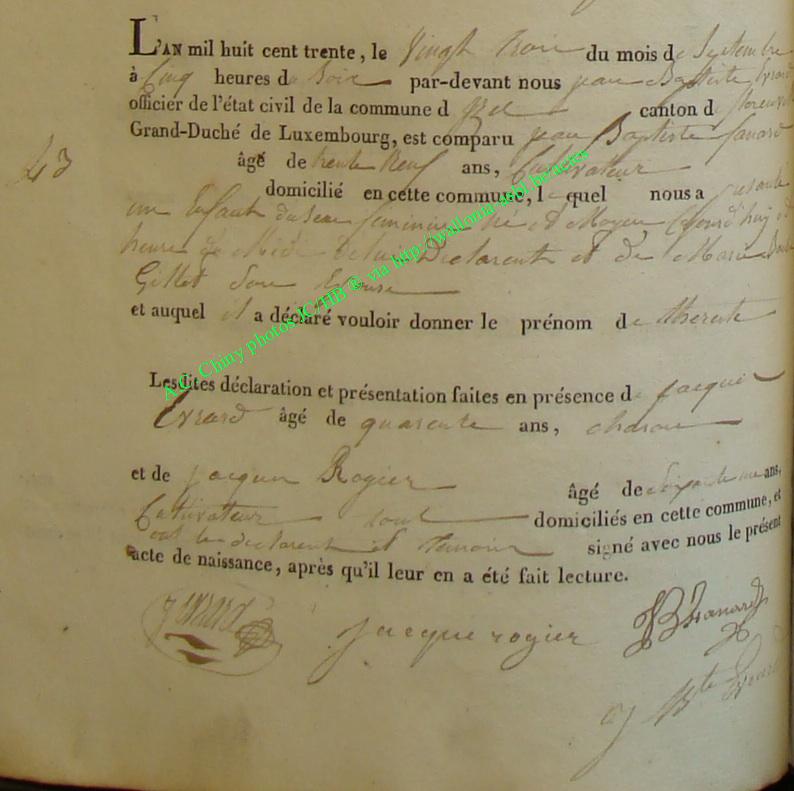 L'AN mil huit cent trente, le Vingt trois du mois de Septembre
à Cinq heures de Soir par-devant nous jean Baptiste Evrard
officier de l'état civil de la commune d'Izel canton de florenville
Grand-Duché de Luxembourg, est comparu jean Baptiste fanard
43
âgé de trente Neuf ans, Cultivateur
domicilié en cette commune, lequel nous a presenté
un Enfant du sexe feminine Né et Moyen, aujourd'huy
heures de Midi de lui Declarent et de Marie
Gillet Son Epouse
et auquel il a déclaré vouloir donner le prénom de therese
Lesdites déclaration et présentation faites en présence de jacque
Evrard âgé de quarente ans, charon
et de jacque Rogier âgé de Soixante ans,
Cultivateur tout domiciliés en cette commune, et
ont le declarent et temoin signé avec nous le présent
acte de naissance, après qu'il leur en a été fait lecture.
j Evrard jacque rogier JB fanard
j Bte Evrard
A.C. Chiny photos IC/HB ® via http://wallonia-asbl.benactes